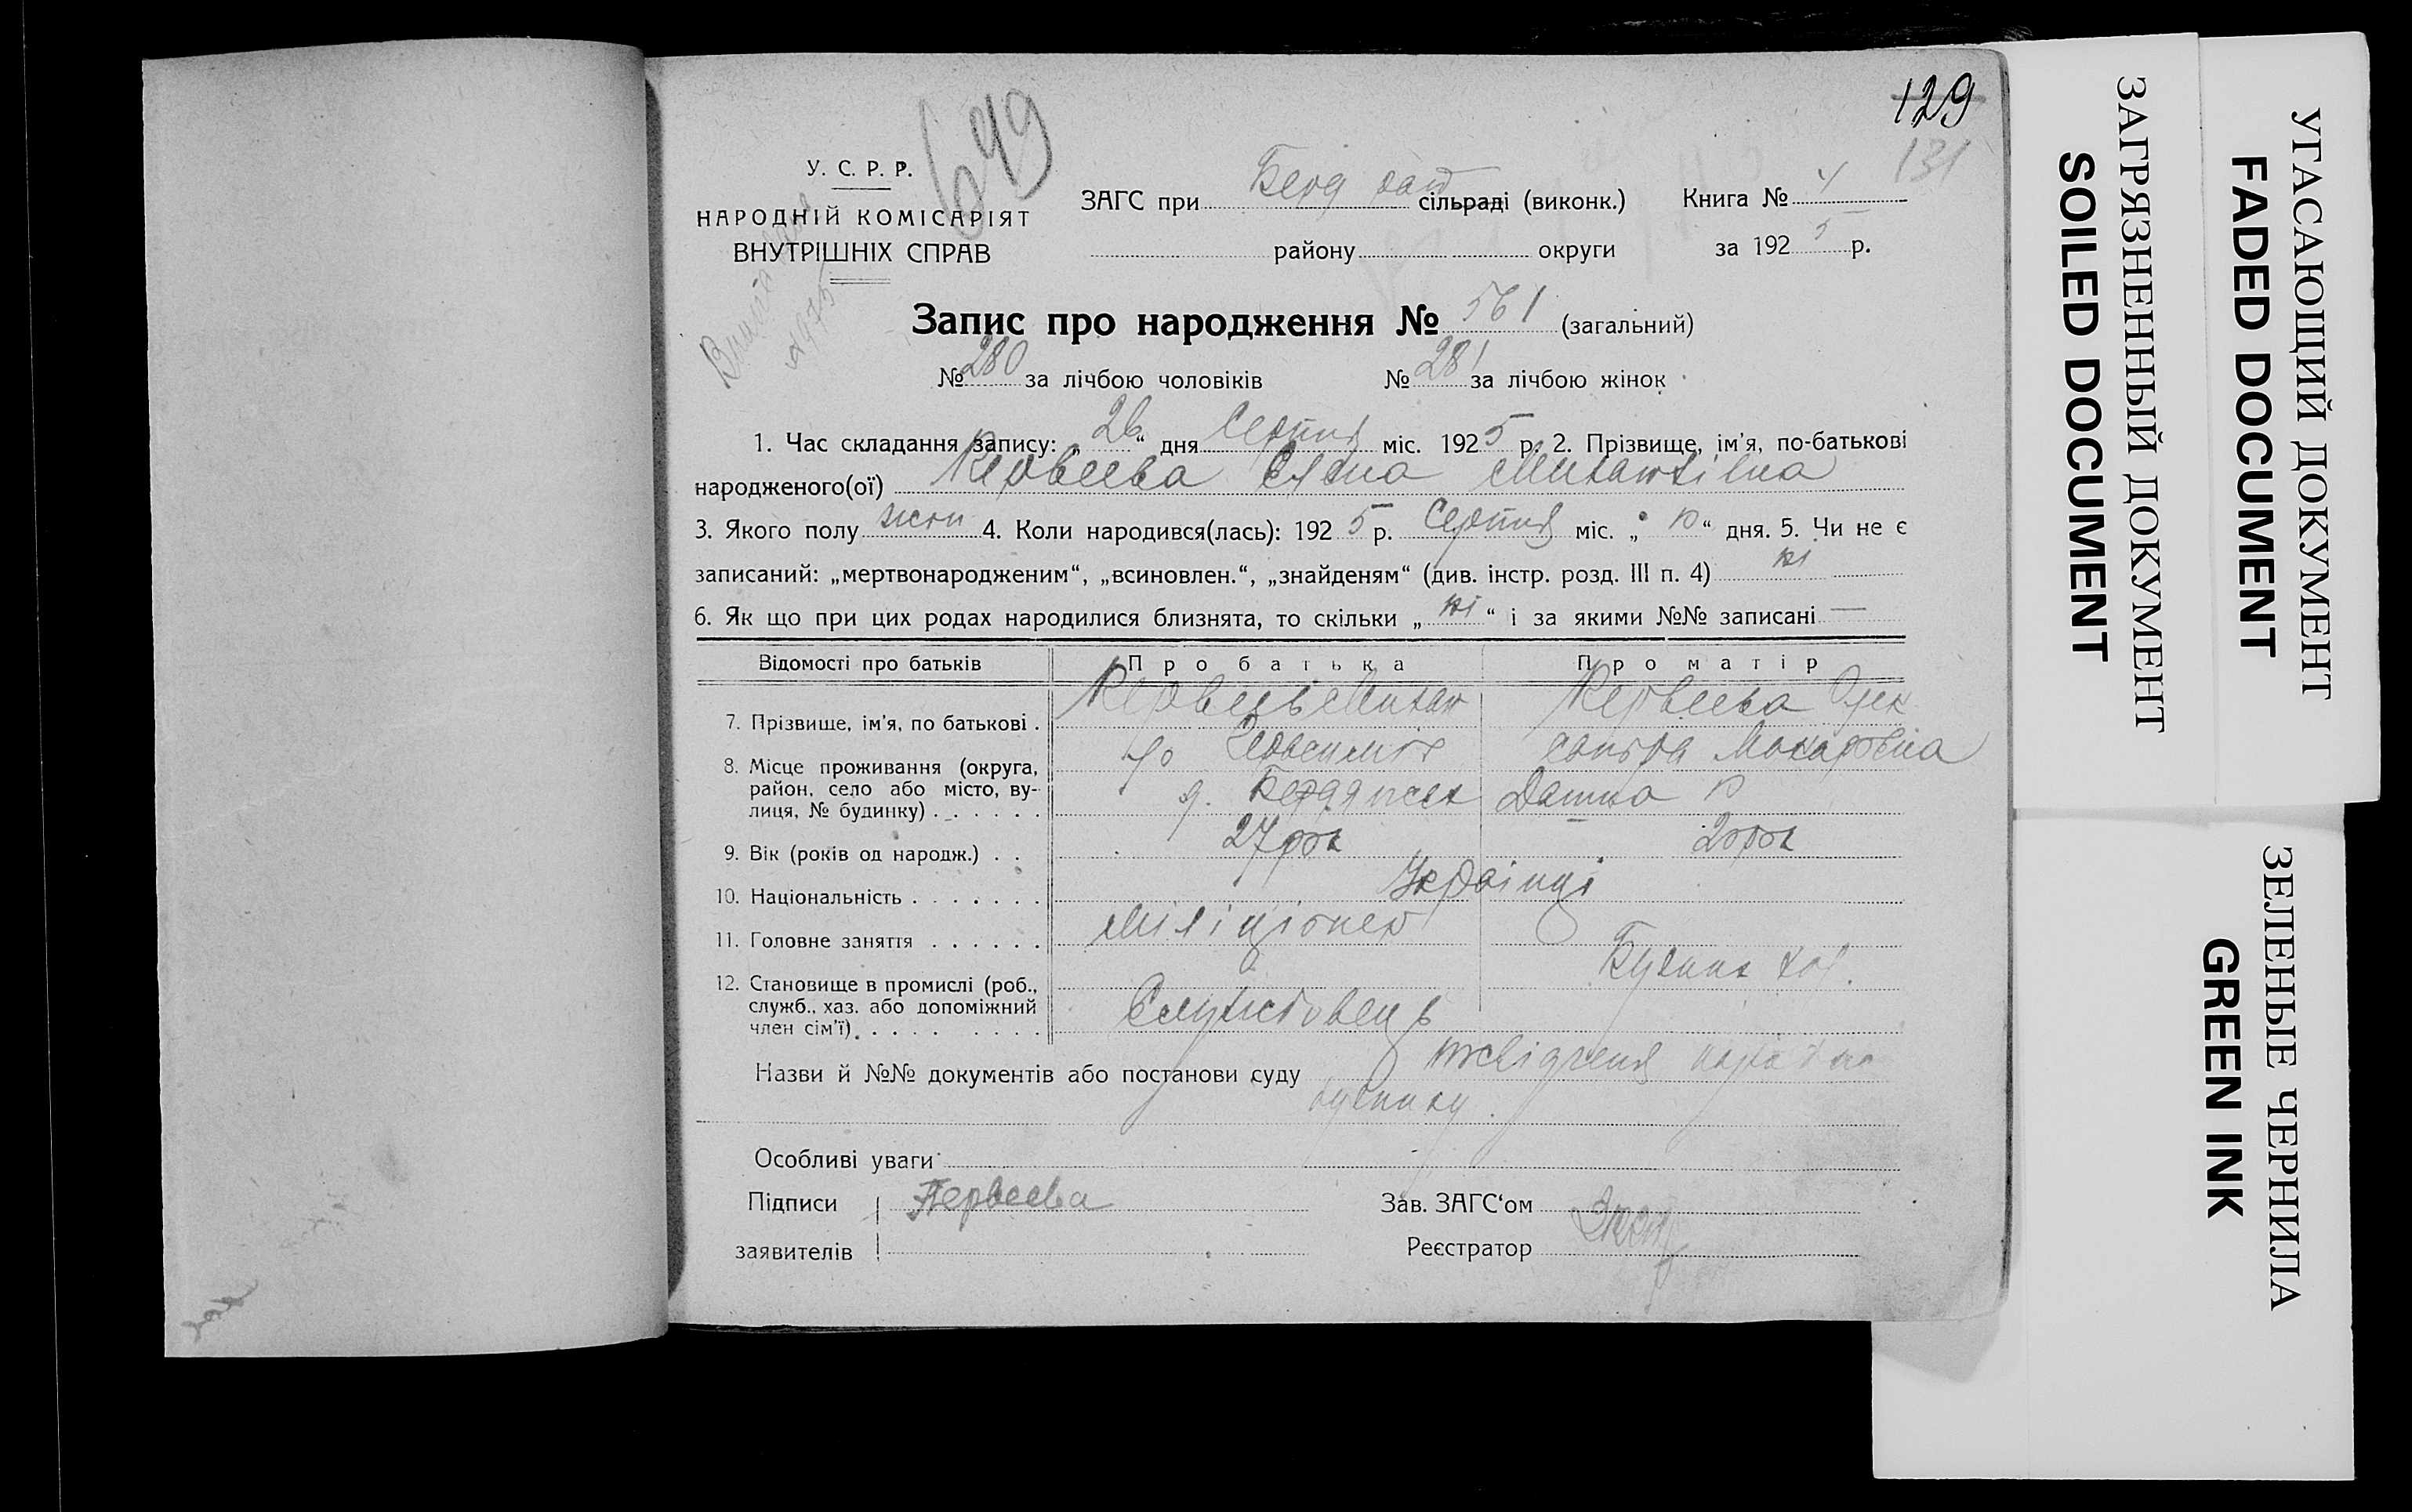 129
131
699
У. С. Р. Р.
НАРОДНІЙ КОМІСАРІЯТ
ВНУТРІШНІХ СПРАВ
ЗАГС при Берд сільраді (виконк.) Книга № 4
району округи за 1925 р.
Запис про народження № 561 (загальний)
№ 280 за лічбою чоловіків № 281 за лічбою жінок
1. Час складання запису: „26“ дня Серпня міс. 1925 р. 2. Прізвище, ім'я, по-батькові
народженого(ої) Первеева Елена
3. Якого полу жен 4. Коли народився(лась): 1925 р. Серпня міс. „ “ дня. 5. Чи не є
записаний: „мертвонародженим“, „всиновлен.“, „знайденям“ (див. інстр. розд. III п. 4) ні
6. Як що при цих родах народилися близнята, то скільки „ні“ і за якими №№ записані —
Відомості про батьків Про батька Про матір
7. Прізвище, ім'я, по батькові . Первеева Олек
сандра Макаровна
8. Місце проживання (округа,
район, село або місто, ву-
лиця, № будинку) . . . . . .
9. Вік (років од народж.) . . 27 рок
10. Національність . . . . . . . Українці
11. Головне заняття . . . . . . Міліціонер
12. Становище в промислі (роб.,
служб., хаз. або допоміжний
член сім'ї). . . . . . . . . Службовець
Назви й №№ документів або постанови суду
Особливі уваги
Підписи Первеева Зав. ЗАГС'ом
заявителів Реєстратор
УГАСАЮЩИЙ ДОКУМЕНТ
FADED DOCUMENT
ЗАГРЯЗНЕННЫЙ ДОКУМЕНТ
SOILED DOCUMENT
ЗЕЛЕНЫЕ ЧЕРНИЛА
GREEN INK